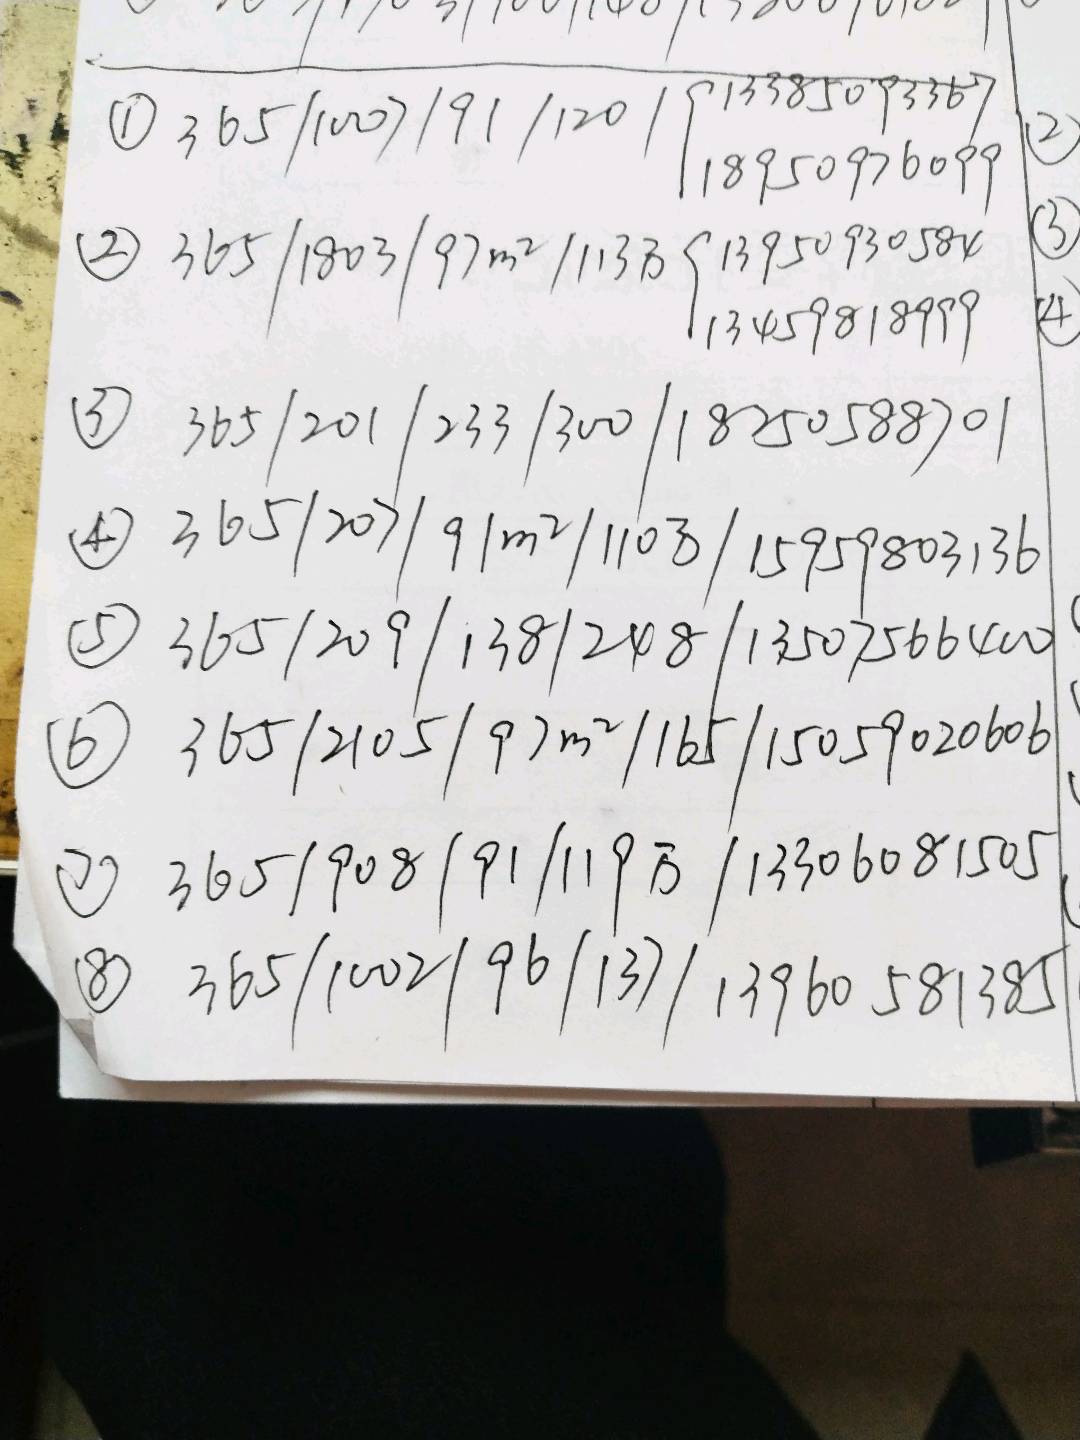 ① 365/1007/91/120/{13385093367
18950976099
② 365/1803/97m²/113万{13950930584
13459818999
③ 365/201/233/300/18250588701
④ 365/207/91m²/110万/15959803136
⑤ 365/209/138/248/13507566400
⑥ 365/2105/97m²/165/15059020606
⑦ 365/908/91/119万/13306081505
⑧ 365/1002/96/137/13960581385
②
③
④